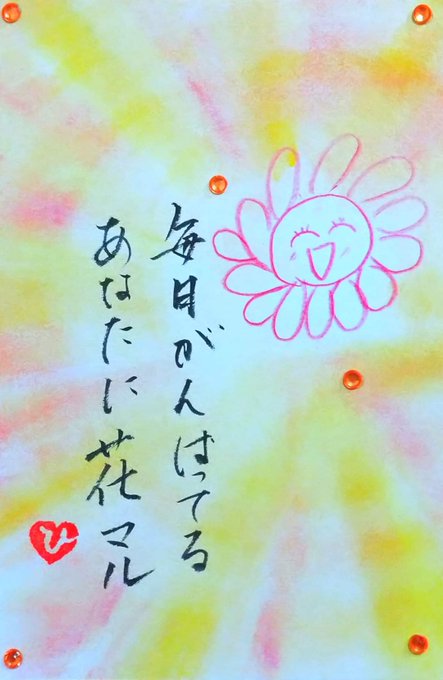 毎日がんばってる
あなたに花マル
ひ